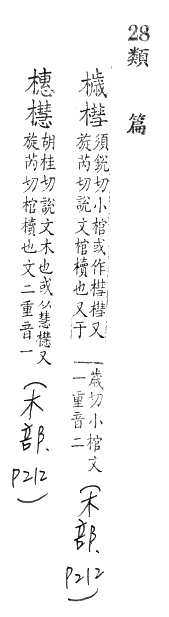 28類 篇
槥
須銳切小棺或作槥槥又
旋芮切說文棺櫝也又于
歲切小棺文
一重音二
(木部. P212)
橞櫘
胡桂切說文木也或从慧櫘又
旋芮切棺櫝也文二重音一
(木部. P212)